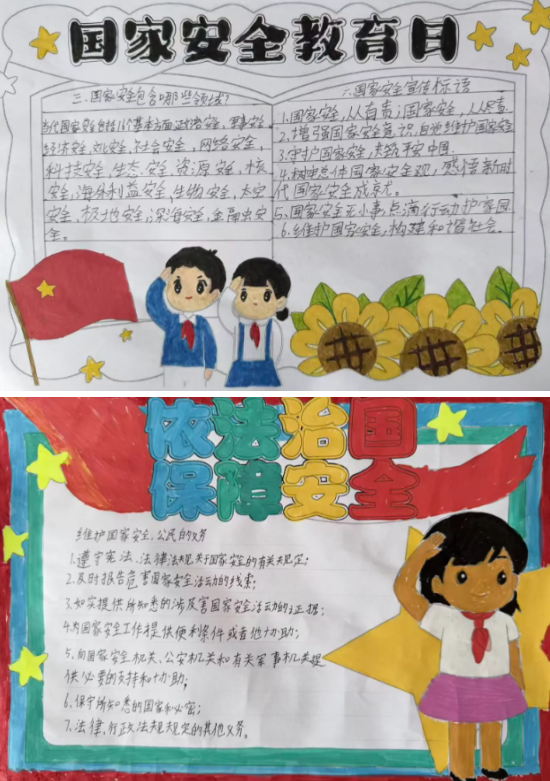 国家安全教育日
三、国家安全包含哪些领域?
当代国家安全包括16个基本方面，政治安全，军事安全
经济安全，文化安全，社会安全，网络安全，
科技安全，生态安全，资源安全，核
安全，海外利益安全，生物安全，太空
安全，极地安全，深海安全，金融安
全。
国家安全宣传标语
1.国家安全，从自责；国家安全，从人尽责
2.增强国家安全意识，自觉维护国家安全
3.守护国家安全，点赞平安中国
4.树电总体国家安全观，感悟新时
代国家安全成就。
5.国家安全无小事点滴行动护家园
6.维护国家安全，构建和谐社会。
依法治国
保障安全
维护国家安全，公民的义务
1.遵守宪法、法律法规关于国家安全的有关规定；
2.及时报告危害国家安全活动的线索；
3.如实提供所知悉的涉及害国家安全活动的证据；
4.为国家安全工作提供便利条件或者他协助；
5、向国家安全机关、公安机关和有关军事机关提
供必要的支持和协助；
6、保守所知悉的国家和必密；
7、法律、行政法规规定的其他义务。